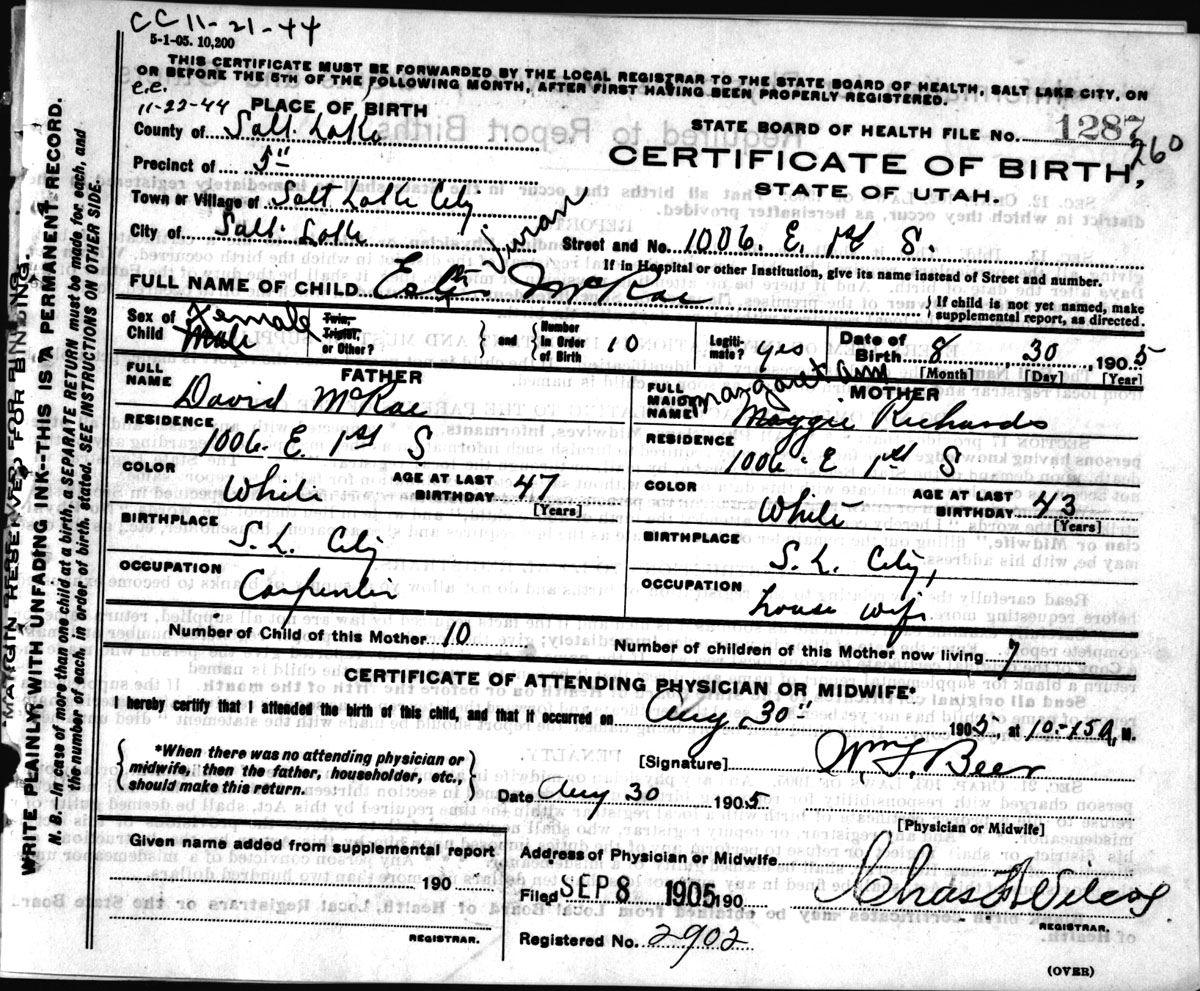 CC 11-21-44
5-1-05. 10,200
THIS CERTIFICATE MUST BE FORWARDED BY THE LOCAL REGISTRAR TO THE STATE BOARD OF HEALTH, SALT LAKE CITY, ON
OR BEFORE THE 5TH OF THE FOLLOWING MONTH, AFTER FIRST HAVING BEEN PROPERLY REGISTERED.
e.e.
11-22-44 PLACE OF BIRTH
STATE BOARD OF HEALTH FILE No. 1287
260
County of Salt Lake
CERTIFICATE OF BIRTH,
Precinct of 5"
STATE OF UTAH.
Town or Village of Salt Lake City
City of Salt Lake Street and No. 1006. E. 1st S.
If in Hospital or other Institution, give its name instead of Street and number.
FULL NAME OF CHILD McRae
If child is not yet named, make
supplemental report, as directed.
Sex of Child Female Male
Twin, Triplet, or Other? and Number in Order of Birth 10
Legitimate? yes
Date of Birth 8 30 1905
[Month] [Day] [Year]
FATHER
FULL NAME David McRae
RESIDENCE 1006. E. 1st S
COLOR White AGE AT LAST BIRTHDAY 47 [Years]
BIRTHPLACE S. L. City
OCCUPATION Carpenter
MOTHER
Margaret ann
FULL MAIDEN NAME Maggie Richards
RESIDENCE 1006. E 1st S
COLOR White AGE AT LAST BIRTHDAY 43 [Years]
BIRTHPLACE S. L. City,
OCCUPATION house wife
Number of Child of this Mother 10 Number of children of this Mother now living 7
CERTIFICATE OF ATTENDING PHYSICIAN OR MIDWIFE*
I hereby certify that I attended the birth of this child, and that it occurred on Aug 30" 1905, at 10-15 A. M.
*When there was no attending physician or
midwife, then the father, householder, etc.,
should make this return.
[Signature] Wm F. Beer
Date Aug 30 1905
[Physician or Midwife]
Given name added from supplemental report
190
REGISTRAR.
Address of Physician or Midwife
Filed SEP 8 1905 190
Chas F Wilcox
REGISTRAR.
Registered No. 2902
(OVER)
MARGIN RESERVED FOR BINDING.
WRITE PLAINLY WITH UNFADING INK--THIS IS A PERMANENT RECORD.
N. B. In case of more than one child at a birth, a SEPARATE RETURN must be made for each, and
the number of each, in order of birth, stated. SEE INSTRUCTIONS ON OTHER SIDE.